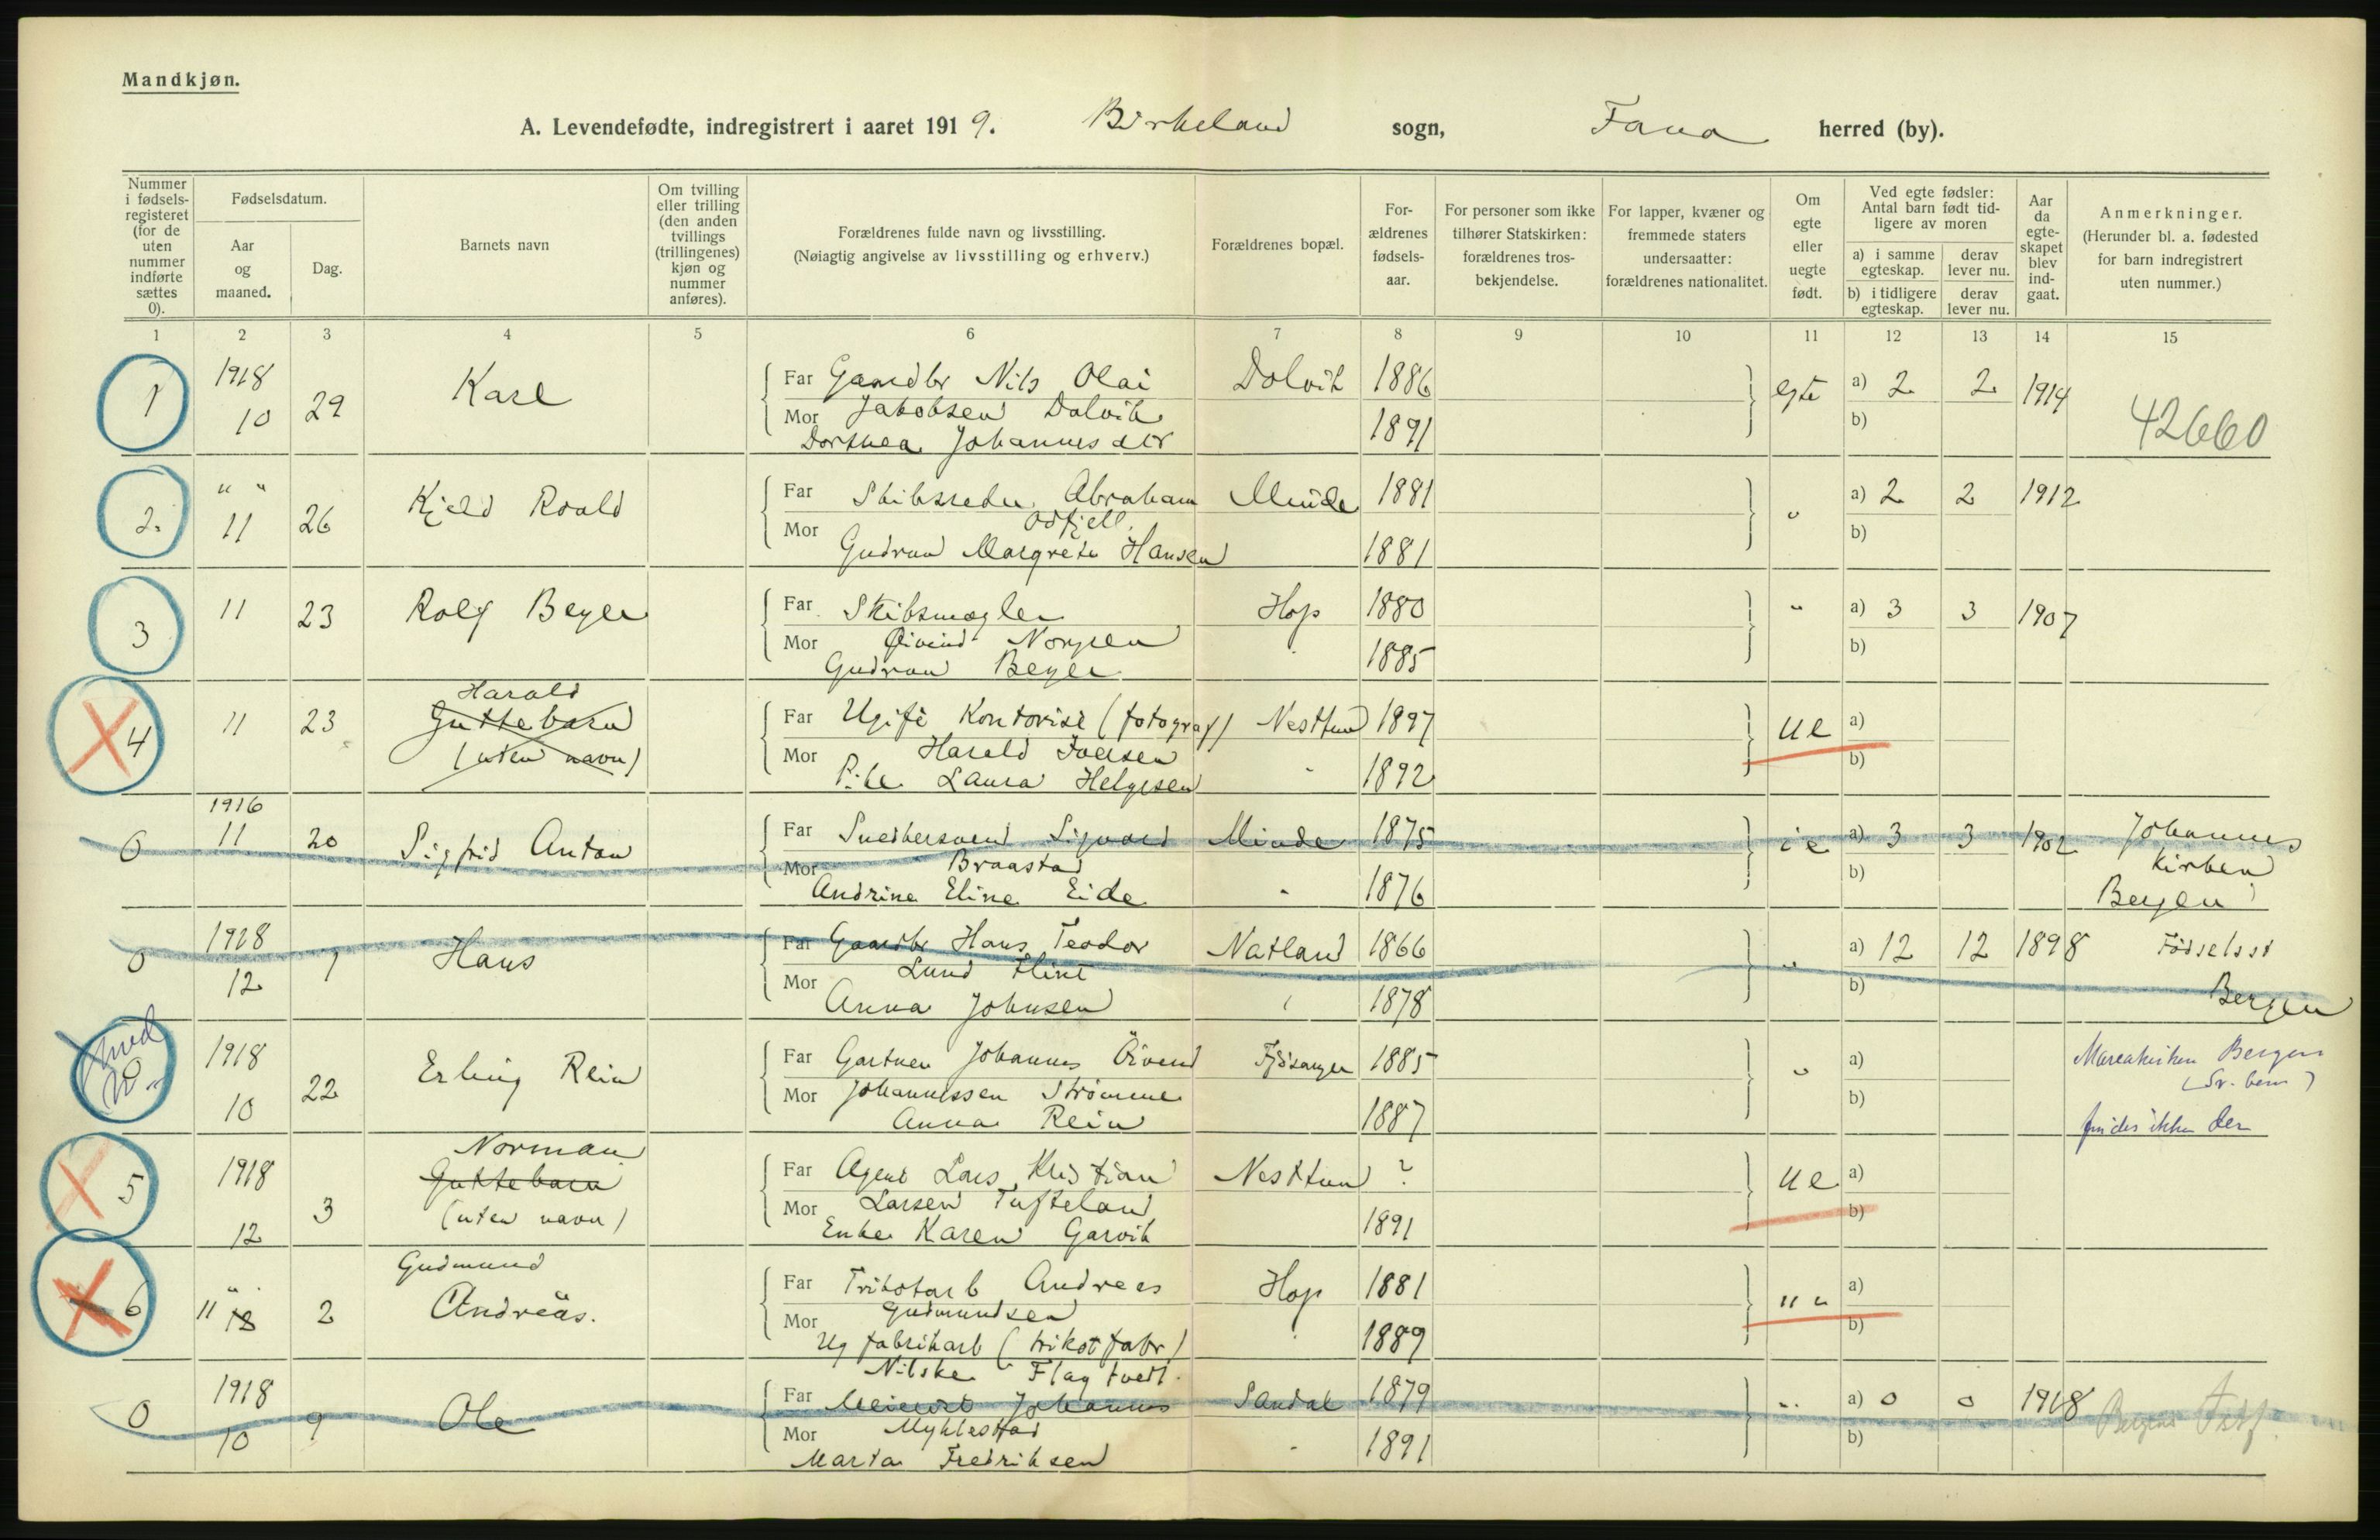 Mandkjøn.
A. Levendefødte, indregistrert i aaret 1919. Birkeland sogn, Fana herred (by).
Nummer i fødsels-registeret (for de uten nummer indførte sættes 0).
Fødselsdatum.
Aar og maaned.
Dag.
Barnets navn
Om tvilling eller trilling (den anden tvillings (trillingenes) kjøn og nummer anføres).
Forældrenes fulde navn og livsstilling.
(Nøiagtig angivelse av livsstilling og erhverv.)
Forældrenes bopæl.
For-ældrenes fødsels-aar.
For personer som ikke tilhører Statskirken: forældrenes tros-bekjendelse.
For lapper, kvæner og fremmede staters undersaatter: forældrenes nationalitet.
Om egte eller uegte født.
Ved egte fødsler: Antal barn født tid-ligere av moren
a) i samme egteskap. derav lever nu.
b) i tidligere egteskap. derav lever nu.
Aar da egte-skapet blev ind-gaat.
Anmerkninger.
(Herunder bl. a. fødested for barn indregistrert uten nummer.)
1 2 3 4 5 6 7 8 9 10 11 12 13 14 15
1 1918 10 29 Karl Far Gaardbr Nils Olai Dolvik 1886 egte a) 2 2 1914
Mor Jakobsen Dolvik b)
Dorthea Johannesdtr 1891 42660
2. " " 11 26 Kjeld Roald Far Skibsreder Abraham Minde 1881 " a) 2 2 1912
Odfjell
Mor Gudrun Margrete Hansen 1881 b)
3 11 23 Rolf Beyer Far Skibsmægler Hop 1880 " a) 3 3 1907
Mor Øivind Norgren b)
Gudrun Beyer 1885
Harald
4 11 23 Guttebarn Far Ugift Kontorist (fotograf) Nesttun 1897 ue a)
(uten navn) Mor Harald Iversen b)
Pike Laura Helgesen " 1892
0 1916 11 20 Sigfrid Anton Far Snedkersvend Sigvard Minde 1875 ie a) 3 3 1902 Johannes
Mor Braastad b) kirken
Andrine Eline Eide " 1876 Bergen
0 1918 12 1 Hans Far Gaardbr Hans Teodor Natland 1866 " a) 12 12 1898 Fødselsst
Mor Lund Flint b) Bergen
Anna Johnsen " 1878
med
0 1918 10 22 Erling Rein Far Gartner Johannes Öivend Fjösanger 1885 " a) Mareakirken Bergen
Mor Johannessen Strømme b)
Anna Rein 1887 findes ikke der
Norman
5 1918 12 3 Guttebarn Far Agent Lars Kristian Nesttun ? ue a)
(uten navn) Mor Larsen Tufteland b)
Enke Karen Garvik 1891
Gudmund
6 " 11 18 2 Andreas. Far Trikotarb Andreas Hop 1881 " " a)
Mor Gudmundsen b)
Ug fabrikarb (trikotfabr) " 1889
Nilske Flagtvedt
0 1918 10 9 Ole Far Meierist Johannes Sandal 1879 " a) 0 0 1918 Bergens
Mor Myklestad b)
Marta Fredriksen " 1891